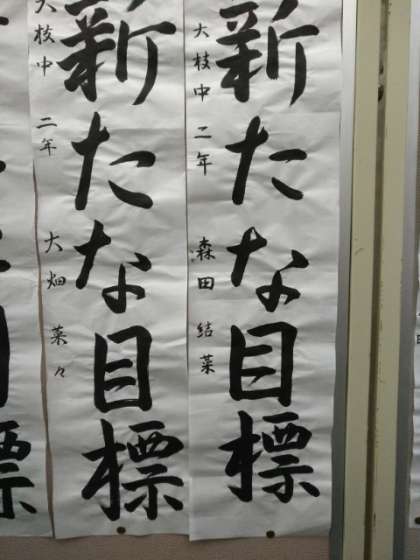 新たな目標
大枝中 二年 森田 結菜
新たな目標
大枝中 二年 大畑 菜々
標